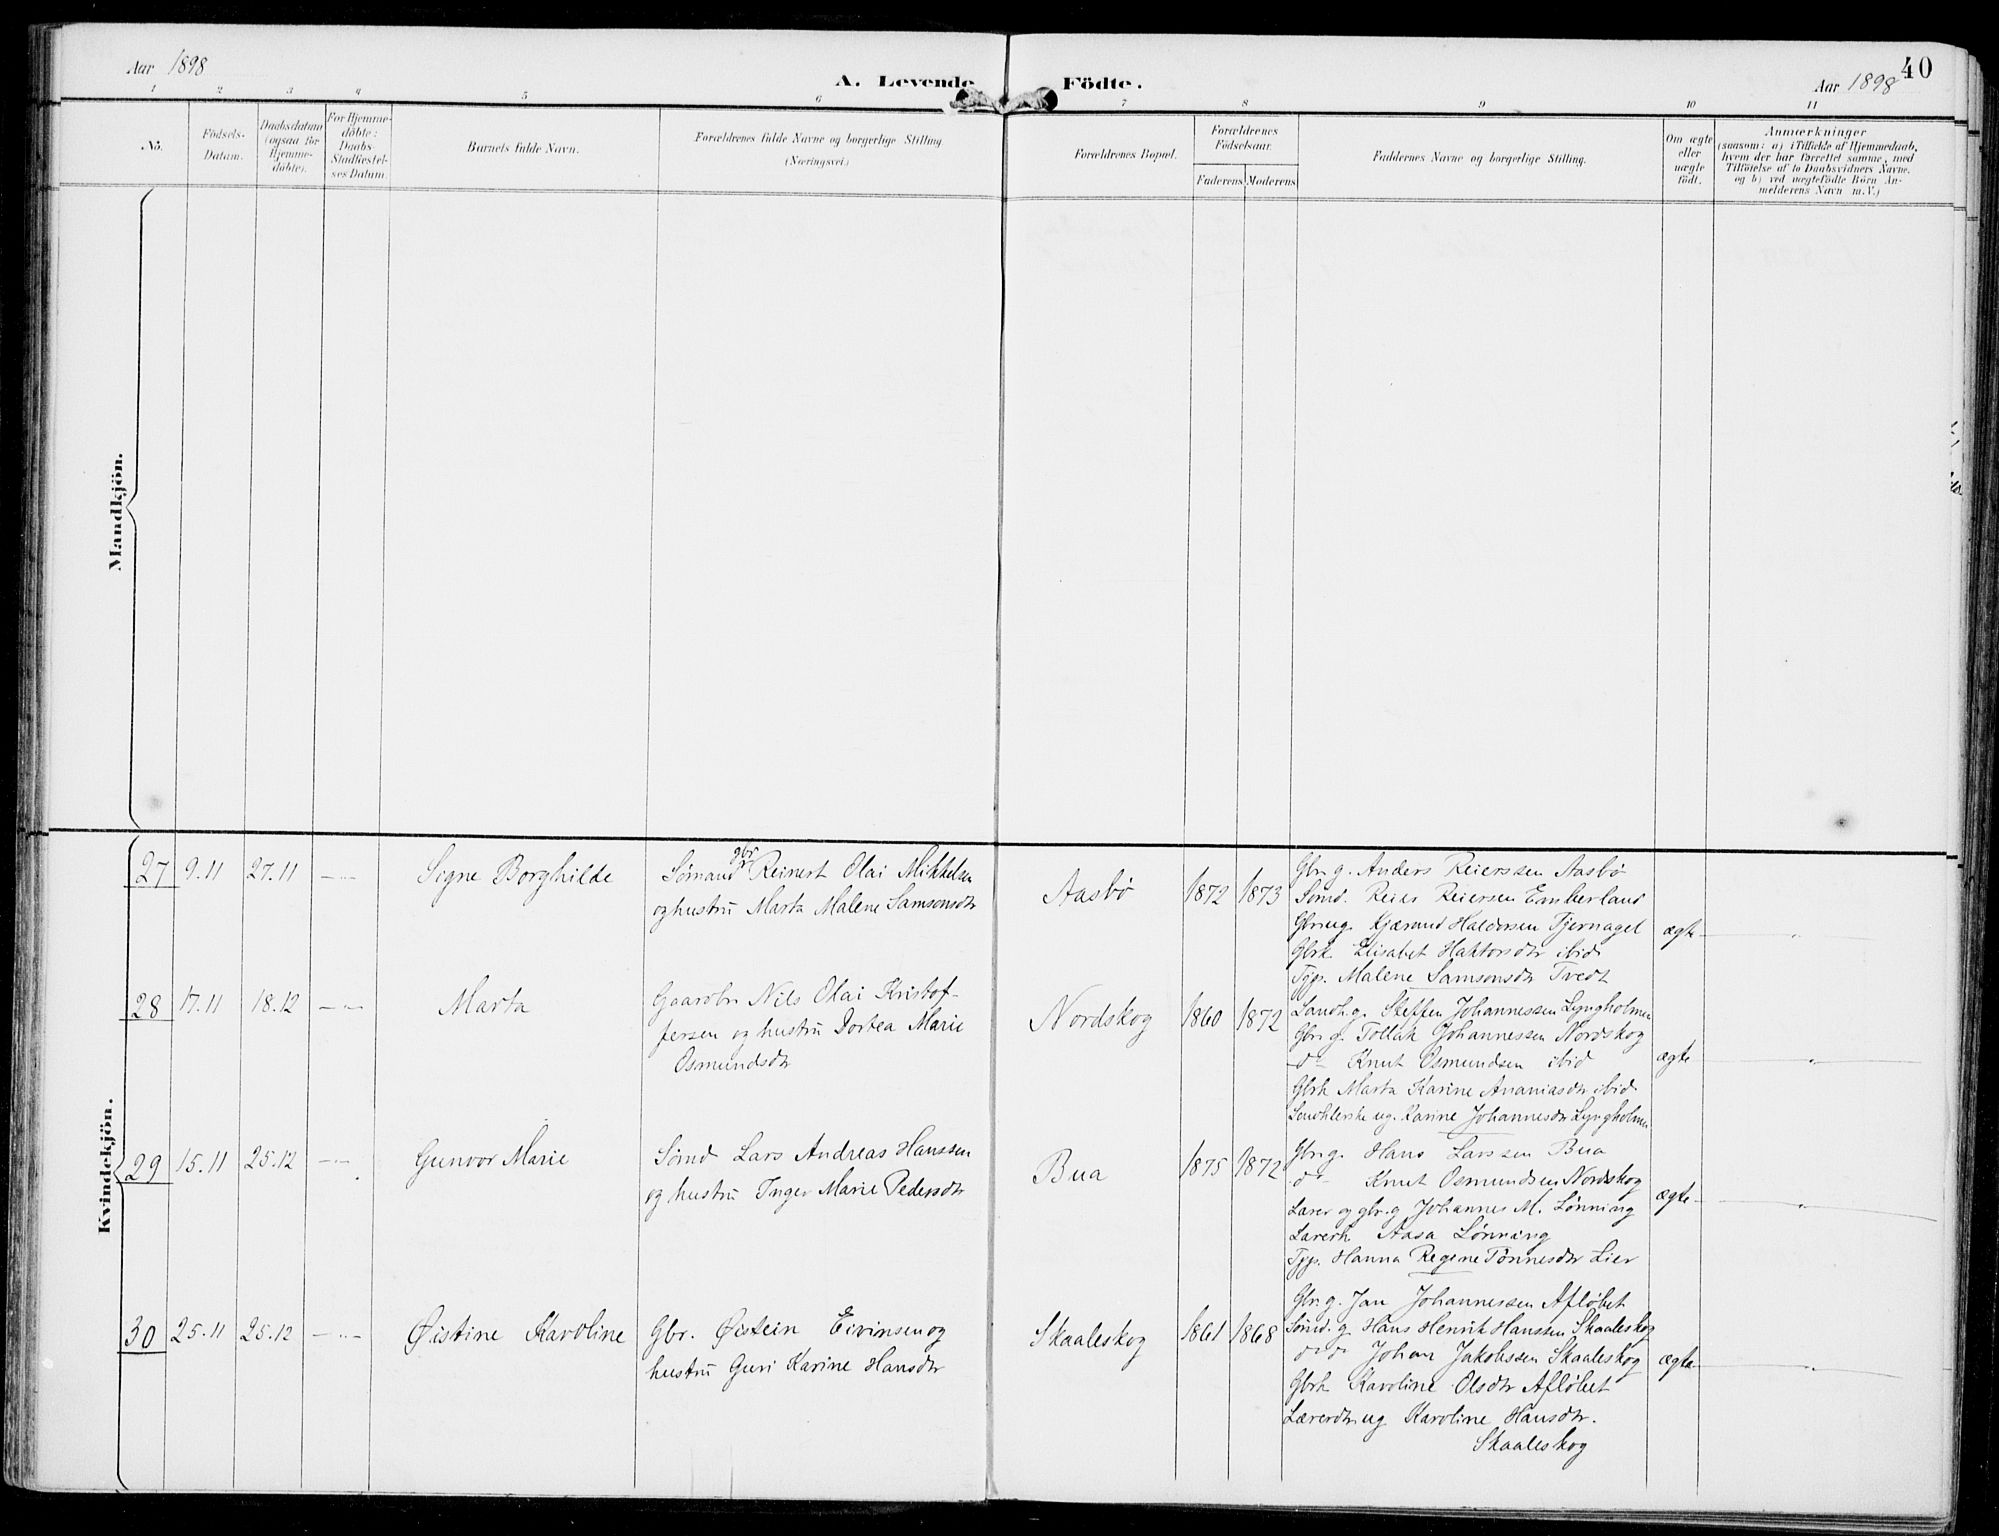 40
Aar 1898
A. Levende Födte.
Aar 1898
1 2 3 4 5 6 7 8 9 10 11
No.
Födsels-
Datum.
Daabsdatum
(ogsaa for
Hjemme-
döbte).
For Hjemme-
döbte:
Daabs-
Stadfæstel-
ses Datum.
Barnets fulde Navn.
Forældrenes fulde Navne og borgerlige Stilling
(Næringsvei.)
Forældrenes Bopæl.
Forældrenes
Födselsaar.
Faderens Moderens
Faddernes Navne og borgerlige Stilling.
Om ægte
eller
uægte
födt.
Anmærkninger
(saasom: a) i Tilfælde af Hjemmedaab,
hvem der har forrettet samme, med
Tilföielse af to Daabsvidners Navne.
og b) ved uægtefödte Börn An-
melderens Navn m. V.)
Mandkjön.
Kvindekjön.
27 9.11 27.11 — " —
Signe Borghilde
Sømand gbr Reinert Olai Mikkelsen
og hustru Marta Malene Samsonsdtr
Aasbø
1872 1873
Gbr. g. Anders Reierssen Aasbø
Sømd. Reier Reiersen Emberland
Gbr. ug. Kjærand Haldorsen Tjernagel
Gbrk. Elisabet Haktorsdtr ibid
Tjp. Malene Samsonsdtr Tvedt
ægte — " —
28 17.11 18.12 — " —
Marta
Gaardbr Nils Olai Kristof-
fersen og hustru Dortea Marie
Osmundsdtr
Nordskog
1860 1872
Landh. g. Steffen Johannessen Lyngholmen
Gbr. g. Tollak Johannessen Nordskog
do Knut Osmundsen ibid
Gbrk Marta Karine Ananiasdtr ibid.
ug. Karine Johannesdtr Lyngholmen
ægte — " —
29 15.11 25.12 — " —
Gunvor Marie
Sømd Lars Andreas Hanssen
og hustru Inger Marie Pedersdtr
Bua
1875 1872
Gbr. g. Hans Larssen Bua
do Knut Osmundsen Nordskog
Lærer og gbr. g Johannes M. Lønning
Lærerk Aasa Lønning
Tjp. Hanna Regine Tønnesdtr Lier
ægte — " —
30 25.11 25.12 — " —
Øistine Karoline
Gbr. Øistein Eivinsen og
hustru Guri Karine Hansdtr
Skaaleskog
1861 1868
Gbr. g. Jan Johannessen Afløbet
Sømd. g Hans Henrik Hanssen Skaaleskog
do do Johan Jakobssen Skaaleskog
Gbrk Karoline Olsdtr Afløbet
Lærerdtr ug Karoline Hansdtr.
Skaaleskog
ægte — " —